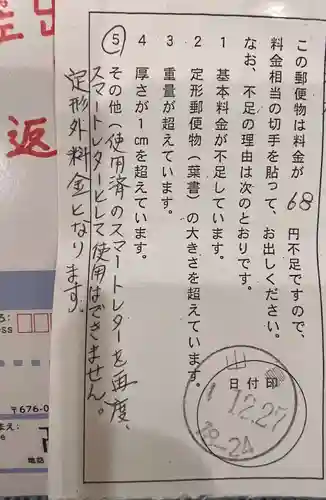 この郵便物は料金が 68 円不足ですので、
料金相当の切手を貼って、お出しください。
なお、不足の理由は次のとおりです。
1 基本料金が不足しています。
2 定形郵便物(葉書)の大きさを超えています。
3 重量が超えています。
4 厚さが1cmを超えています。
⑤ その他(使用済のスマートレターを再度、
スマートレターとして使用はできません。
定形外料金となります。
日付印
山
12.27
18-24
返
〒676-0
地電話